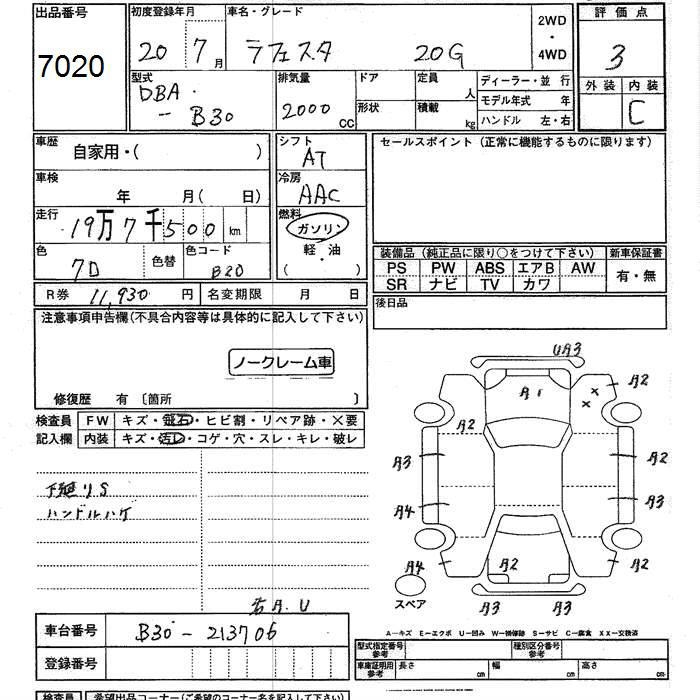 出品番号 初度登録年月 車名・グレード 2WD・4WD 評価点
7020 20 7月 ラフェスタ 20G 3
型式 排気量 ドア 定員 人 ディーラー・並行 外装 内装
DBA-B30 2000cc 形状 積載 kg モデル年式 年 C
ハンドル 左・右
車歴 自家用・( ) シフト AT セールスポイント(正常に機能するものに限ります)
車検 年 月(日) 冷房 AAC
走行 19万7千500km 燃料 ガソリン 軽・油 ( )
色 色替 色コード B20
装備品(純正品に限り○をつけて下さい) 新車保証書
PS PW ABS エアB AW 有・無
SR ナビ TV カワ
R券 11,930円 名変期限 月 日 後日品
注意事項申告欄(不具合内容等は具体的に記入して下さい)
ノークレーム車
修復歴 有 〔箇所 〕
検査員 FW キズ・飛石・ヒビ割・リペア跡・×要
記入欄 内装 キズ・汚レ・コゲ・穴・スレ・キレ・破レ
下廻りS
ハンドルハゲ
UA3
A1 A2
A2
A3 A2
A4 A3
A4 A2 A2
スペア A3 A3
右A.U
車台番号 B30-213706
登録番号
A―キズ E―エクボ U―凹み W―補修跡 S―サビ C―腐食 XX―交換済
型式指定番号 参考 種別区分番号 参考
車庫証明用 参考 長さ cm 幅 cm 高さ cm
検査員 希望出品コーナー(ご希望のコーナー名を記入して下さい)